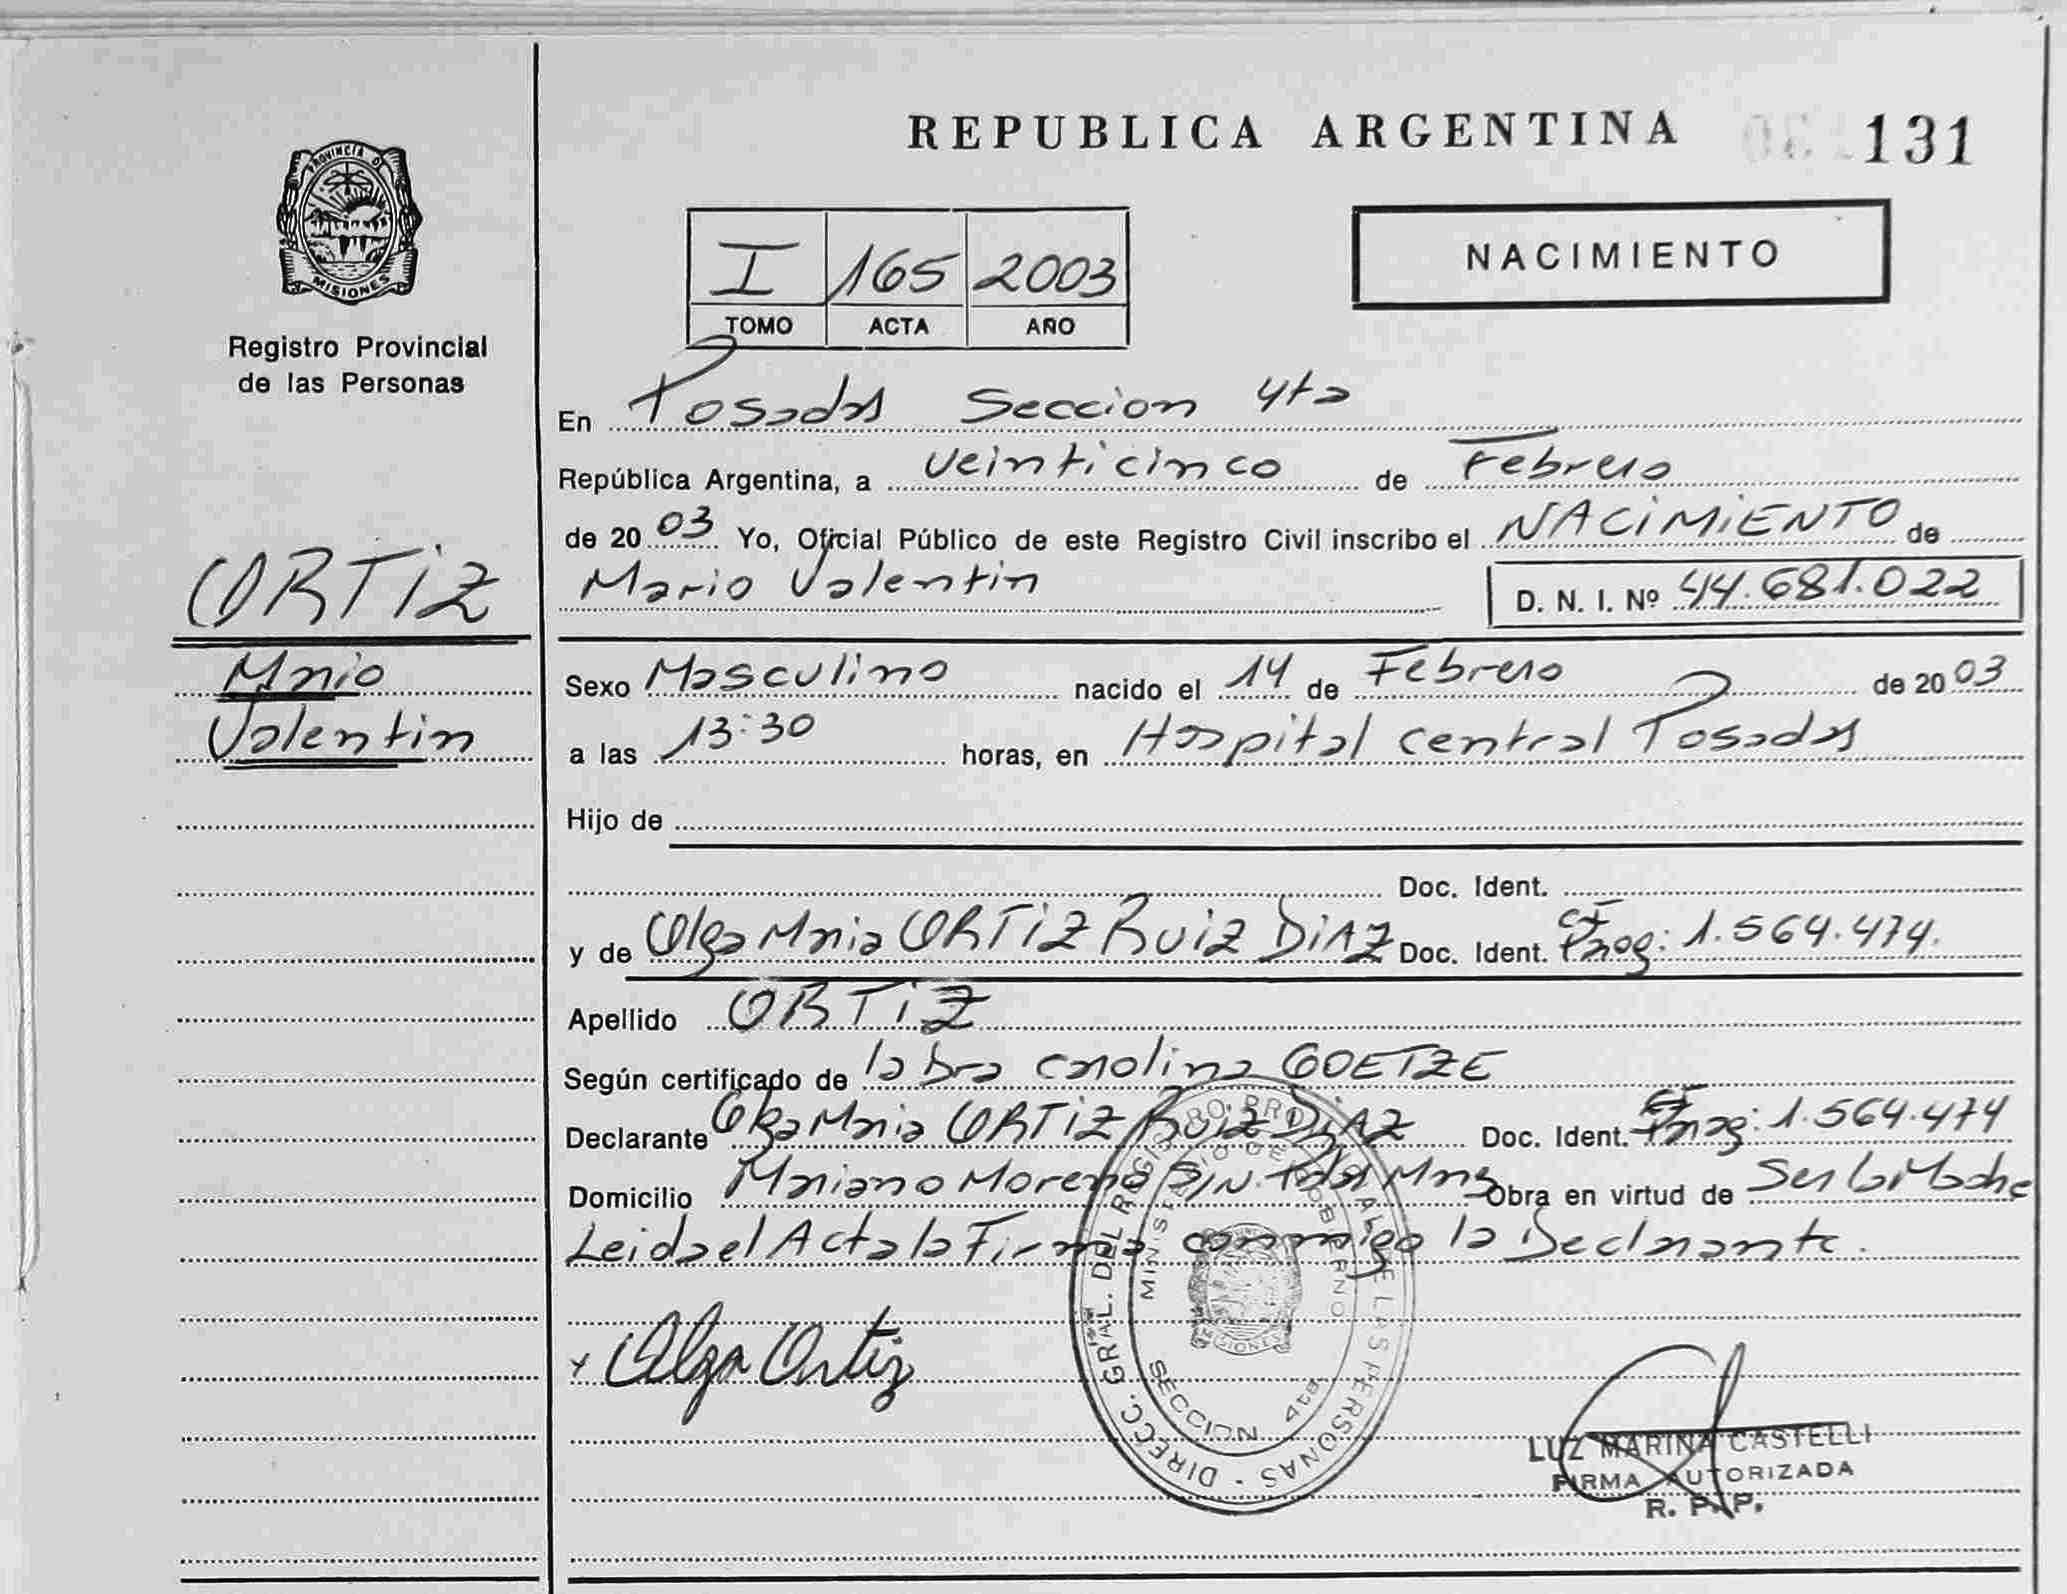 REPUBLICA ARGENTINA 131
PROVINCIA DE
MISIONES
Registro Provincial
de las Personas
NACIMIENTO
I 165 2003
TOMO ACTA AÑO
En Posadas Seccion 4ta
República Argentina, a veinticinco de Febrero
de 20 03 Yo, Oficial Público de este Registro Civil inscribo el NACIMIENTO de
Mario Valentin D. N. I. Nº 44.681.022
ORTIZ
Mario
Valentin
Sexo Masculino nacido el 14 de Febrero de 20 03
a las 13:30 horas, en Hospital central Posadas
Hijo de
Doc. Ident.
y de Olga Maria ORTIZ RUIZ DIAZ Doc. Ident. 1.564.474.
Apellido ORTIZ
Según certificado de la Dra Carolina GOETZE
Declarante Olga Maria ORTIZ RUIZ DIAZ Doc. Ident. 1.564.474
Domicilio Mariano Moreno S/N Pdas Mnes Obra en virtud de Ser la Madre
Leida el Acta la Firma conmigo la Declarante.
x Olga Ortiz
DIRECC. GRAL. DEL REGISTRO PROVINCIAL DE LAS PERSONAS
MINISTERIO DE GOBIERNO
MISIONES
SECCION 4ta.
LUZ MARINA CASTELLI
FIRMA AUTORIZADA
R. P. P.